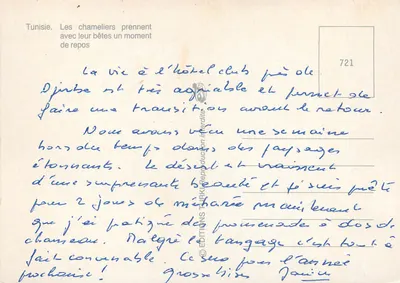 Tunisie. Les chameliers prennent
avec leur bêtes un moment
de repos
721
La vie à l'hôtel club près de
Djerba est très agréable et permet de
faire une transition avant le retour.
Nous avons vécu une semaine
hors du temps dans des paysages
étonnants. Le désert est vraiment
d'une surprenante beauté et je suis prête
pour 2 jours de méharée maintenant
que j'ai pratiqué des promenades à dos de
chameau. Malgré le tangage c'est tout à
fait convenable. Ce sera pour l'année
prochaine! Grosses bises
© EDITIONS reproduction interdite